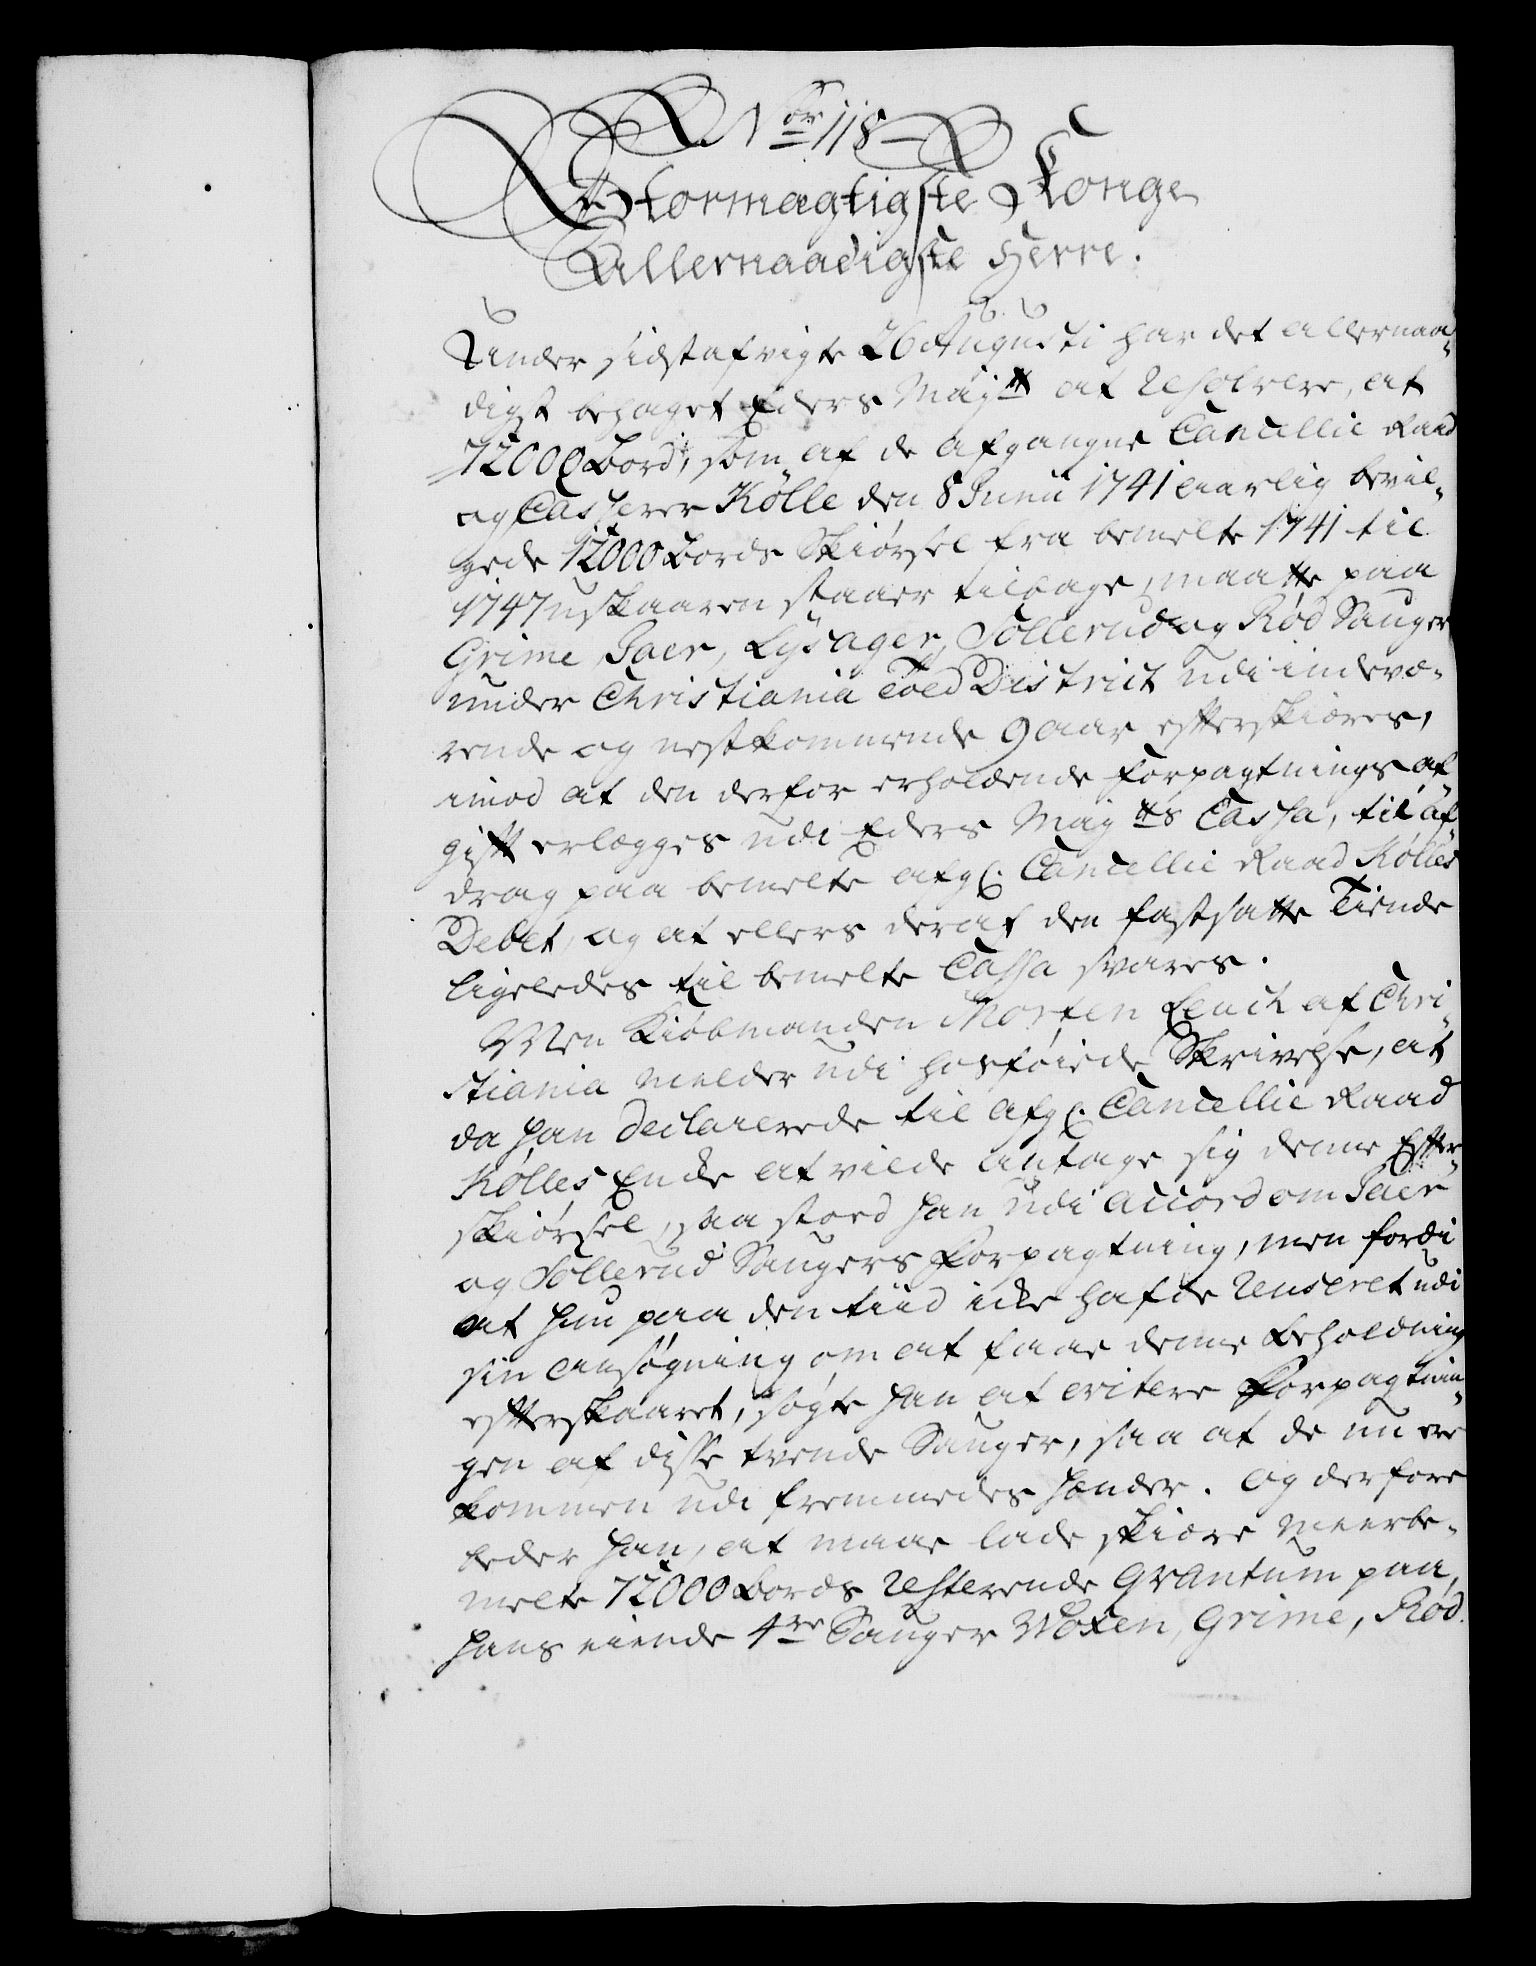 Nor 118
Stormægtigste Konge
Allernaadigste Herre.
Under sidst afvigte 26 Augusti har det allernaa-
digst behaget Eders Mayst at resolvere, at
72000 Bord, som af de afgangne Cancellie Raad
og Casserer Kølle den 8 Junii 1741 aarlig bevil-
gede 12000 Bords Skiørsel fra bemelte 1741 til
1747 uskaaren staaer tilbage, maatte paa
Grime, Jaer, Lysager, Sollerud og Rød Sauger
under Christiania Told District udi indevæ-
rende og nestkommende 9 aar efterskiæres,
imod at den derfor erholdende Forpagtnings af-
gift erlægges udi Eders Mayts Cassa, til af-
drag paa bemelte afg. Cancellie Raad Kølles
Debet, og at ellers deraf den fastsatte Tiende
ligeledes til bemelte Cassa svares.
Men Kiøbmanden Morten Leuch af Chri-
stiania melder udi hosføiede Skrivelse, at
da han declarerede til afg. Cancellie Raad
Kølles Enke at vilde antage sig denne Efter-
skiørsel, saa stoed han udi accord om Jaer
og Sollerud Saugers Forpagtning, men fordi
at hun paa den tiid icke hafde reuseret udi
sin ansøgning om at faae denne Beholdning
efterskaaret, søgte han at evitere Forpagtnin-
gen af disse tvende Sauger, saa at de nu ere
kommen udi fremmedes hænder. Og derfore
beder han, at maae lade skiære meerbe-
melte 72000 Bords resterende qvantum paa,
hans eiende 4re Sauger Woxen, Grime, Rød